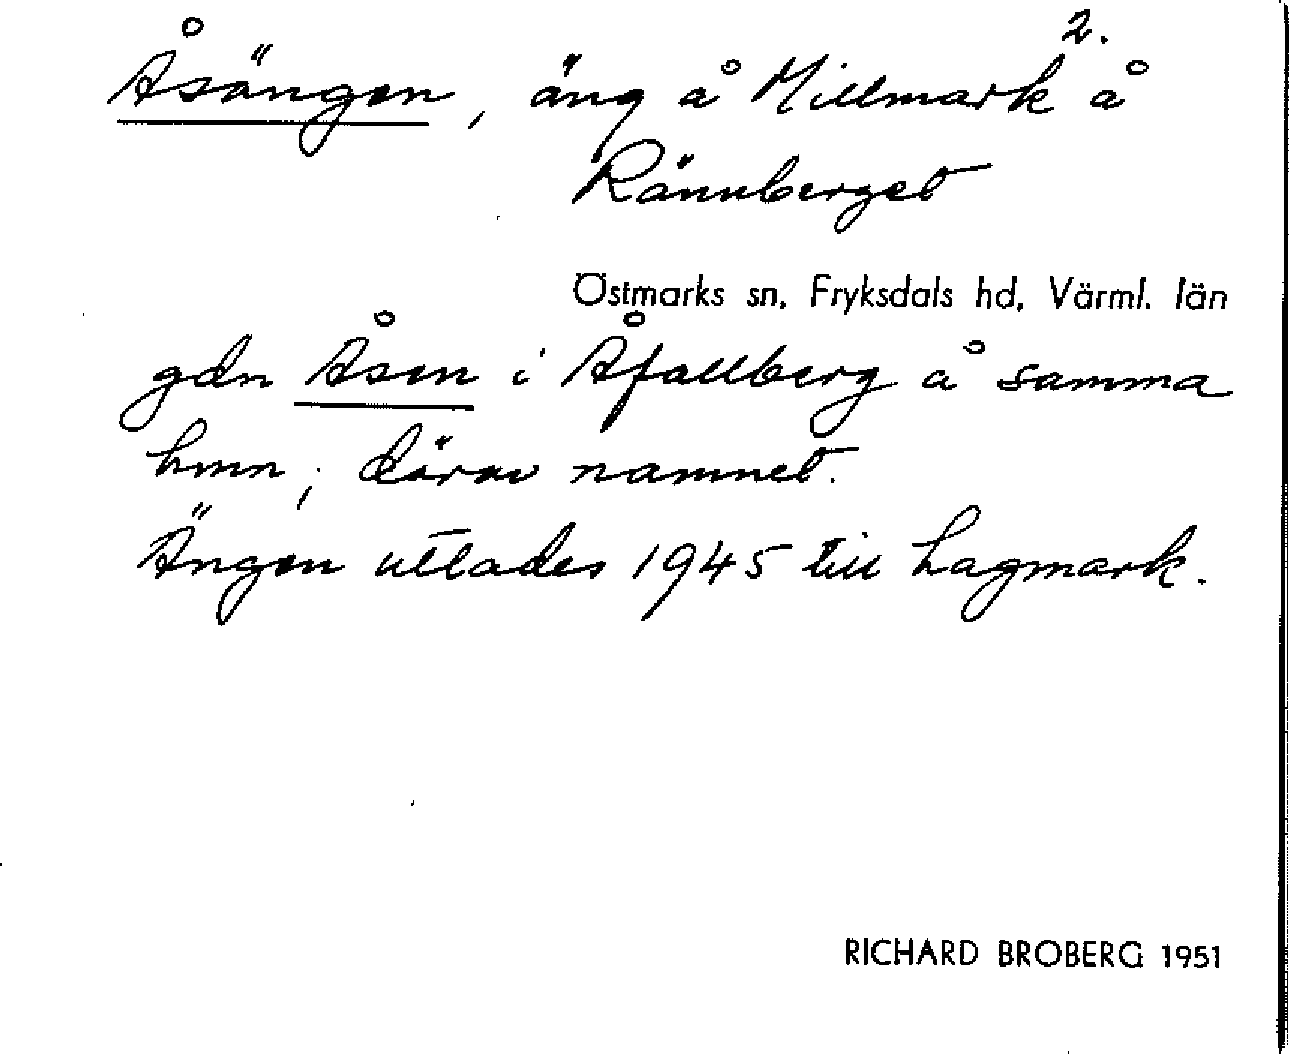 2.
Åsängen, äng å Millmark å
Rännberget
Östmarks sn, Fryksdals hd, Värml. län
gdn Åsen i Åfallberg å samma
hmn; därav namnet.
Ängen utlades 1945 till hagmark.
RICHARD BROBERG 1951